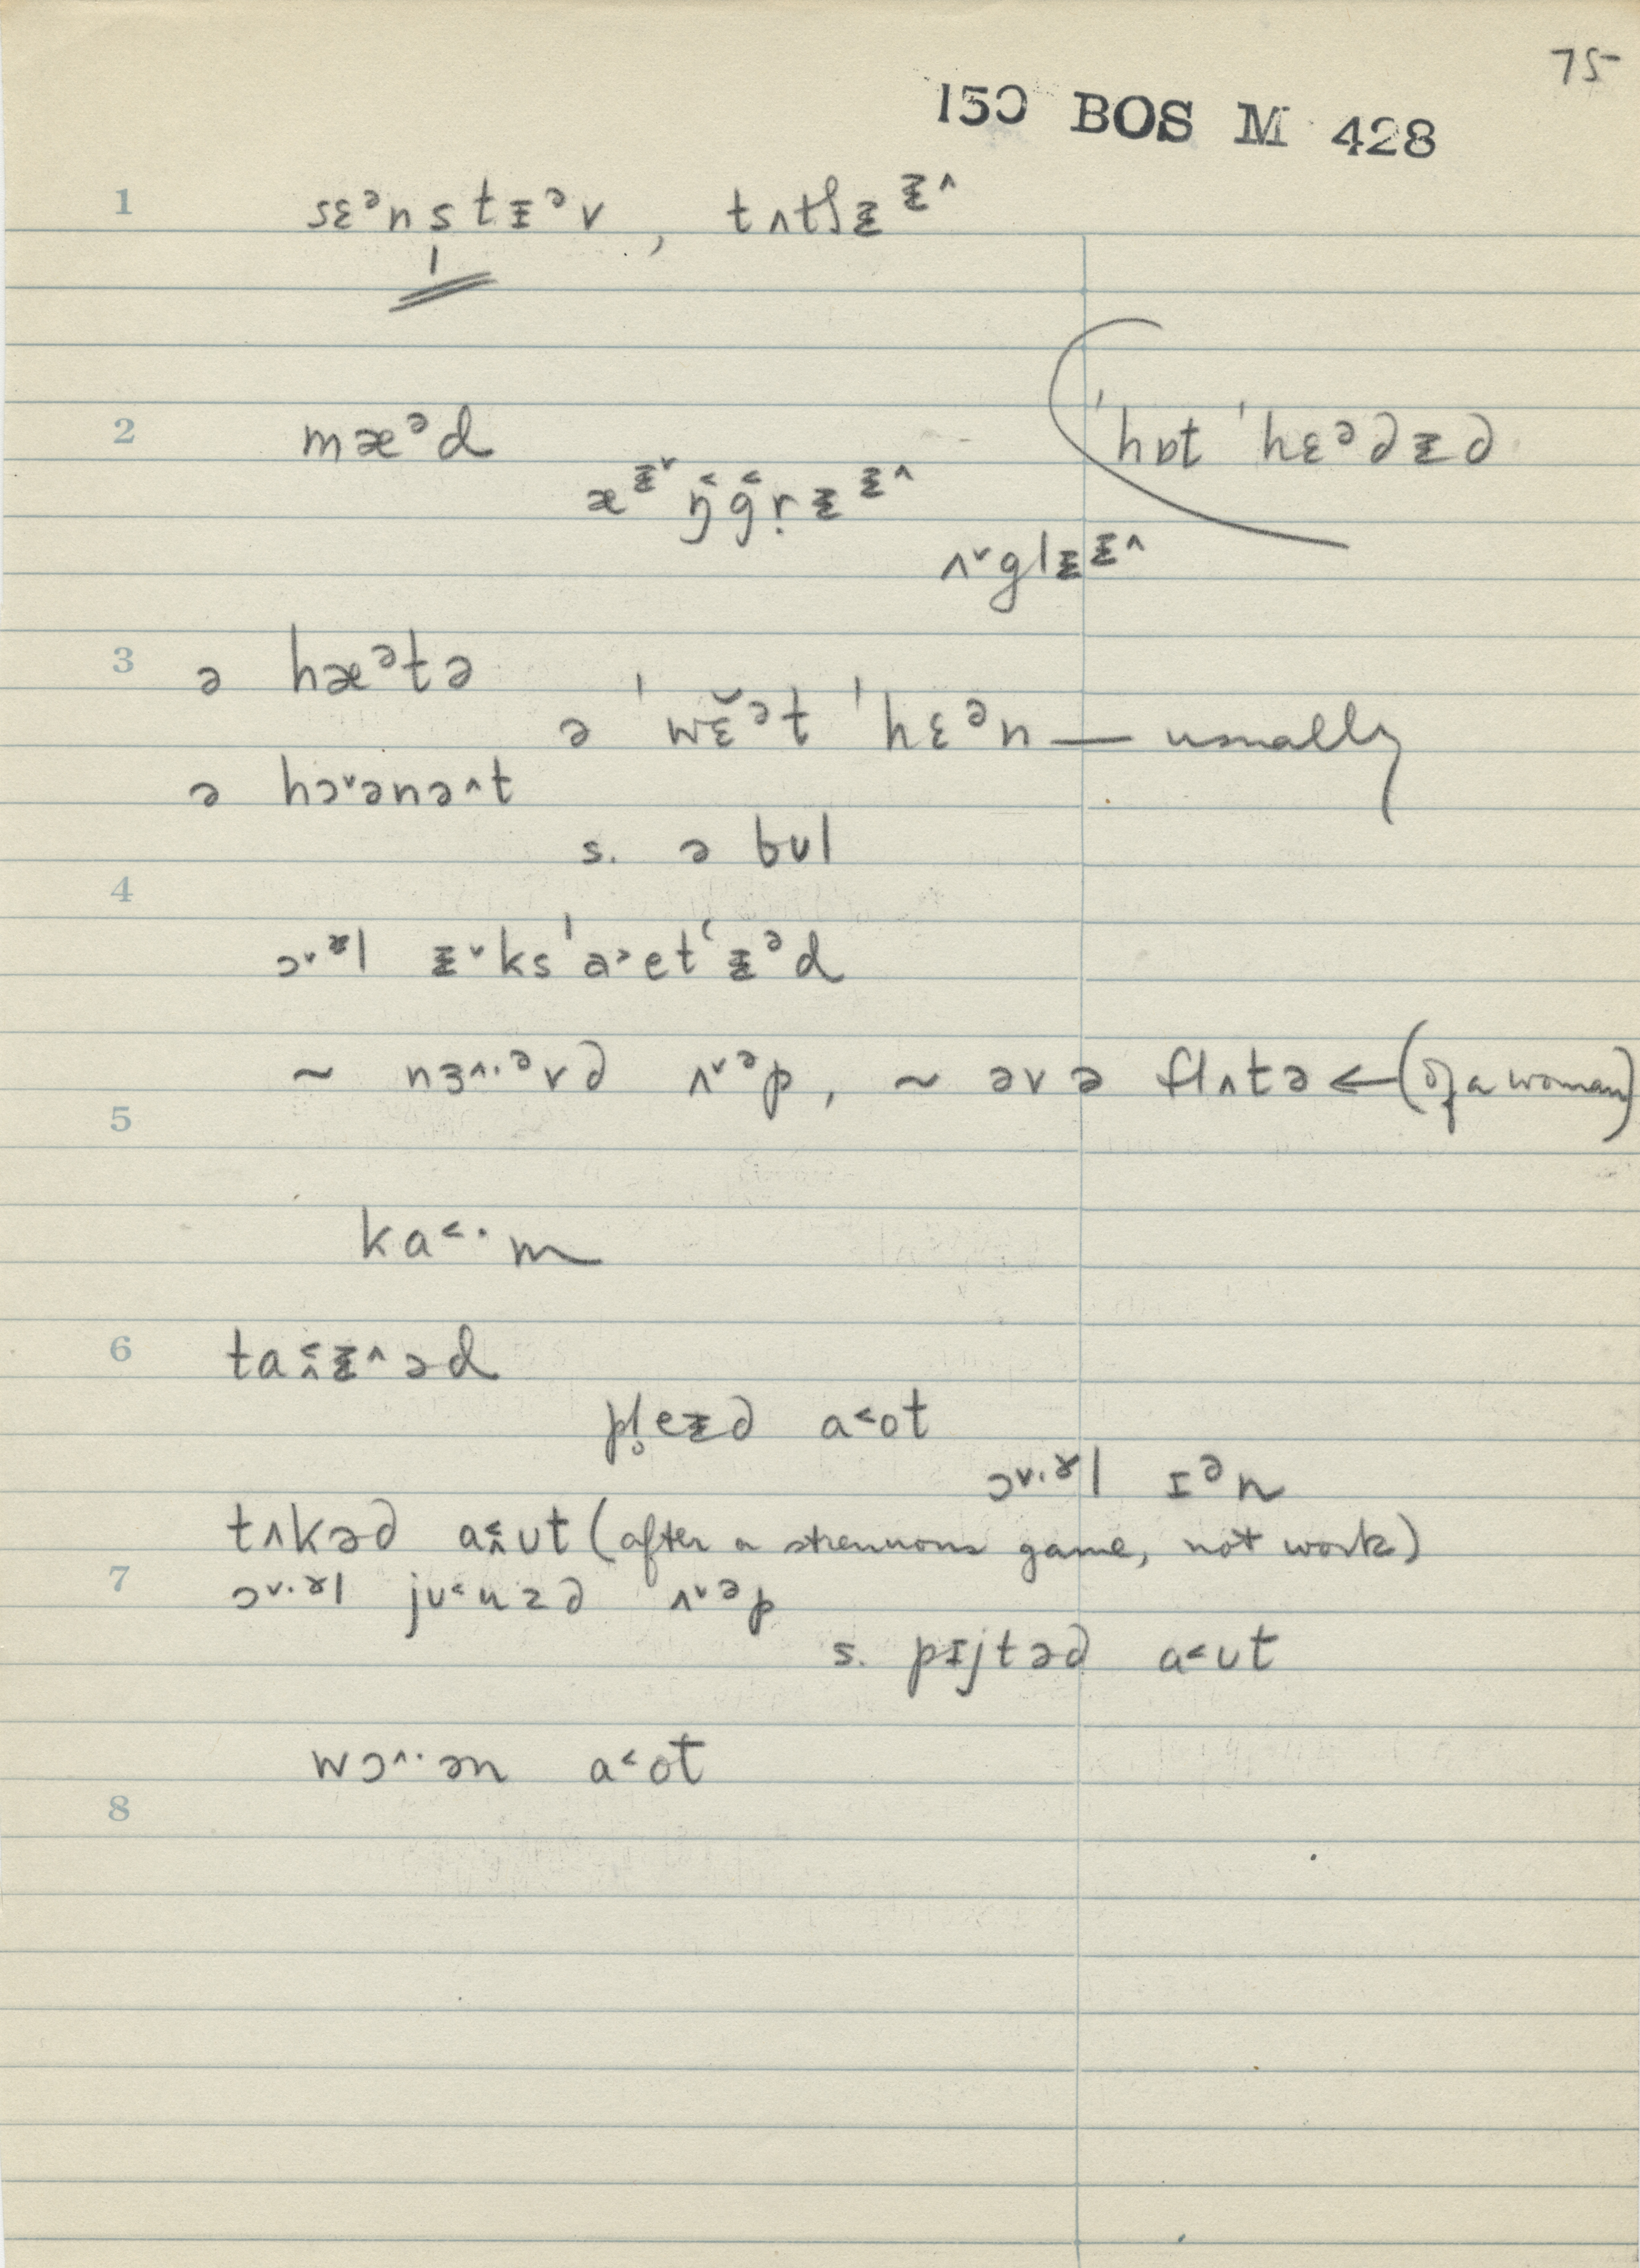 75
150 BOS M 428
1 sɛᵊnstɪᵊv, tʌtʃᵻᵻ^
2 mæᵊd 'hɒt 'hɛᵊ∂ᵻ∂
æᵻ˅ ŋ˂g˂r̥ᵻᵻ^
ʌ˅glᵻᵻ^
3 ə hæᵊtə
ə 'wɛ̆ᵊt 'hɛᵊn — usually
ə hɔ˅ənə^t
s. ə bʊl
4
ɔ˅ᵻ˞l ᵻ˅ks'a˃etʻᵻᵊd
~ nɜ^·ᵊv∂ ʌ˅ᵊp, ~ əvə flʌtə ← (of a woman)
5
ka˂·m
6 ta˂^ᵻ^əd
pl̥eᵻ∂ a˂ot
ɔ˅·ɤl ɪᵊn
tʌkə∂ a˂^ʊt (after a strenuous game, not work)
7 ɔ˅·ɤl jʊ˂uz∂ ʌ˅ᵊp
s. pɪjtə∂ a˂ʊt
wɔ^·ən a˂ot
8